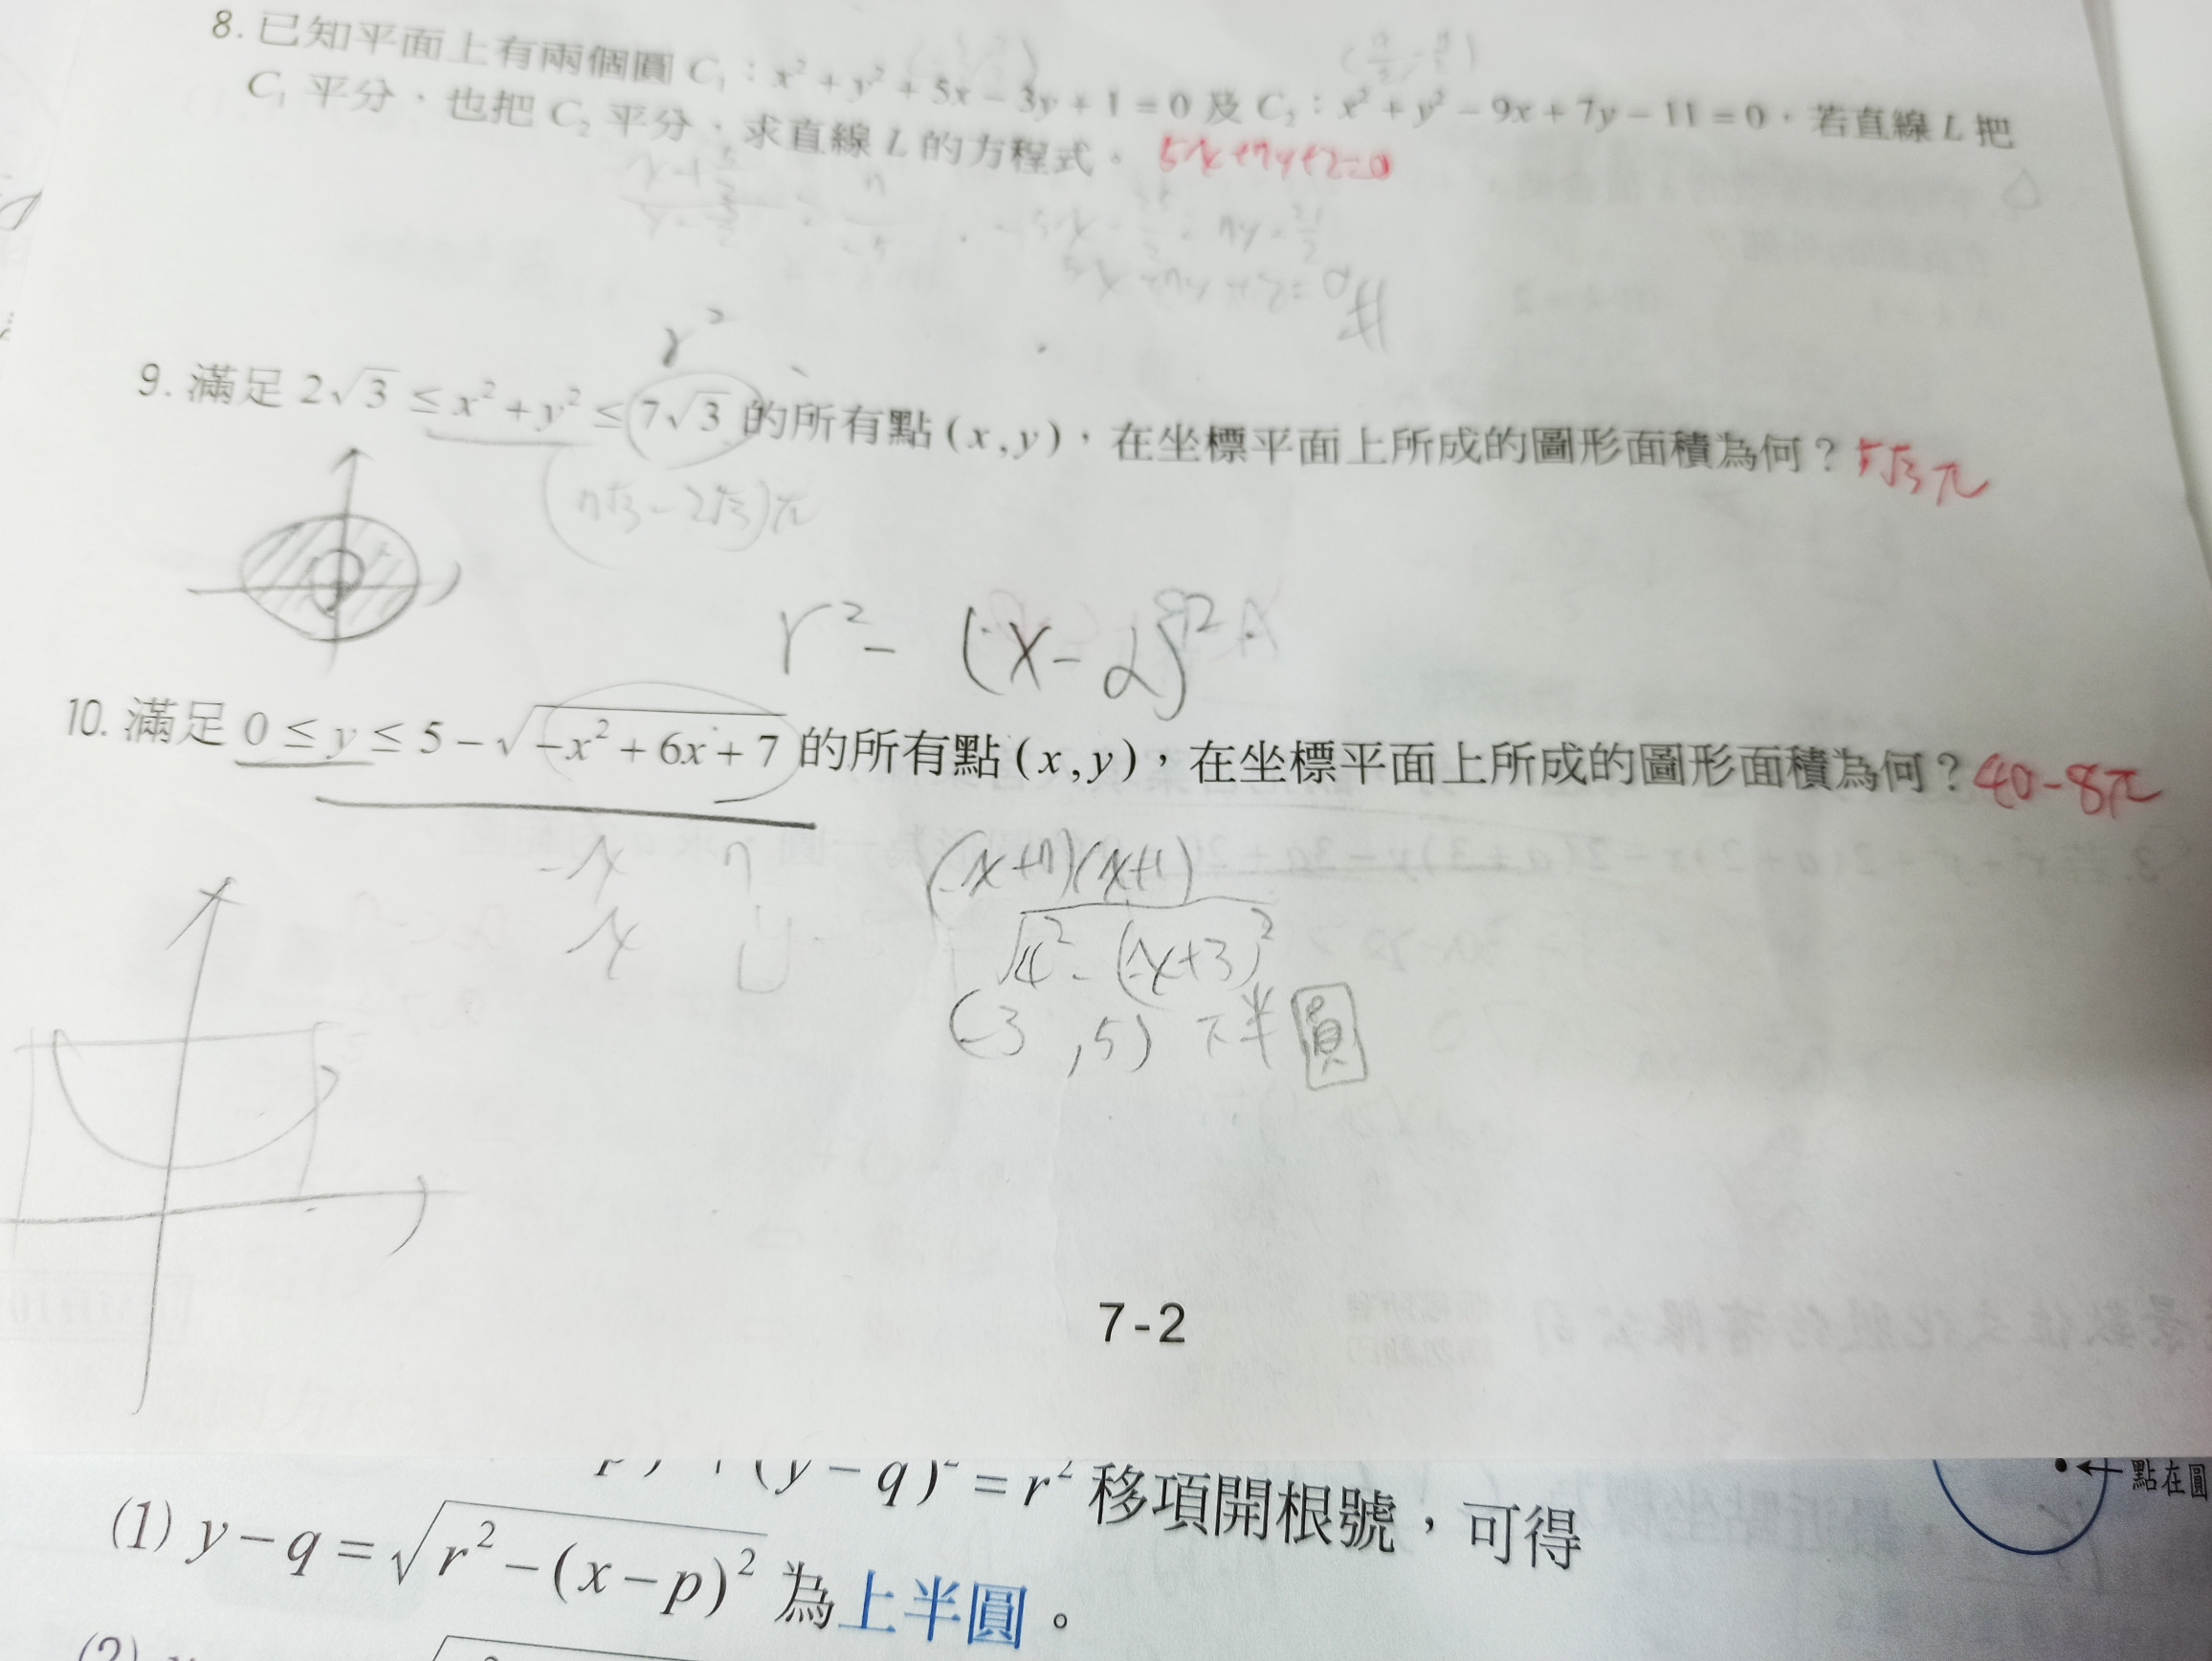 8. 已知平面上有兩個圓 C₁：x² + y² + 5x − 3y + 1 = 0 及 C₂：x² + y² − 9x + 7y − 11 = 0，若直線 L 把
C₁ 平分，也把 C₂ 平分，求直線 L 的方程式。 5x+7y+2=0
r²
9. 滿足 2√3 ≤ x² + y² ≤ 7√3 的所有點 (x, y)，在坐標平面上所成的圖形面積為何？ 5√3π
(7√3 − 2√3)π
r² − (x − 2)²
10. 滿足 0 ≤ y ≤ 5 − √(−x² + 6x + 7) 的所有點 (x, y)，在坐標平面上所成的圖形面積為何？ 40−8π
−x 7
x
(−x+7)(x+1)
√(4² − (−x+3)²)
(−3, 5) 下半圓
7-2
(y − q)² = r² 移項開根號，可得
點在圓
(1) y − q = √(r² − (x − p)²) 為上半圓。
(2)